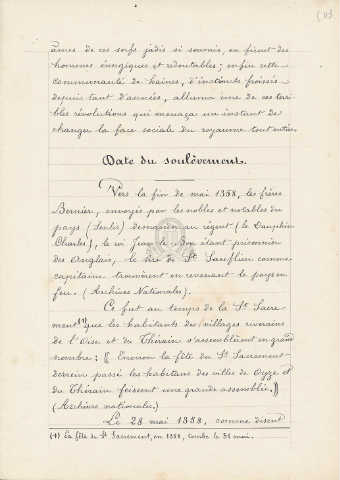 âmes de ces serfs jadis si soumis, en firent des
hommes énergiques et redoutables ; enfin cette
communauté de haines, d'instincts froissés
depuis tant d'années, alluma une de ces terri-
bles révolutions qui menaça un instant de
changer la face sociale du royaume tout entier.
Date du soulèvement.
Vers la fin de mai 1358, les frères
Bernier, envoyés par les nobles et notables du
pays (Senlis) demander au régent (le Dauphin
Charles), le roi Jean le Bon étant prisonnier
des Anglais, le sire de St Sauflieu comme
capitaine trouvèrent en revenant le pays en
feu. (Archives Nationales).
Ce fut au temps de la St Sacre-
ment (1) que les habitants des villages riverains
de l'Oise et du Thérain s'assemblèrent en grand
nombre : (( Environ la fête du St Sacrement
derrein passé les habitans des villes de Oyze et
du Thérain feissent une grande assemblée. ))
(Archives nationales.)
Le 28 mai 1358, comme disent
(1) La fête de St Sacrement, en 1358, tombe le 31 mai.